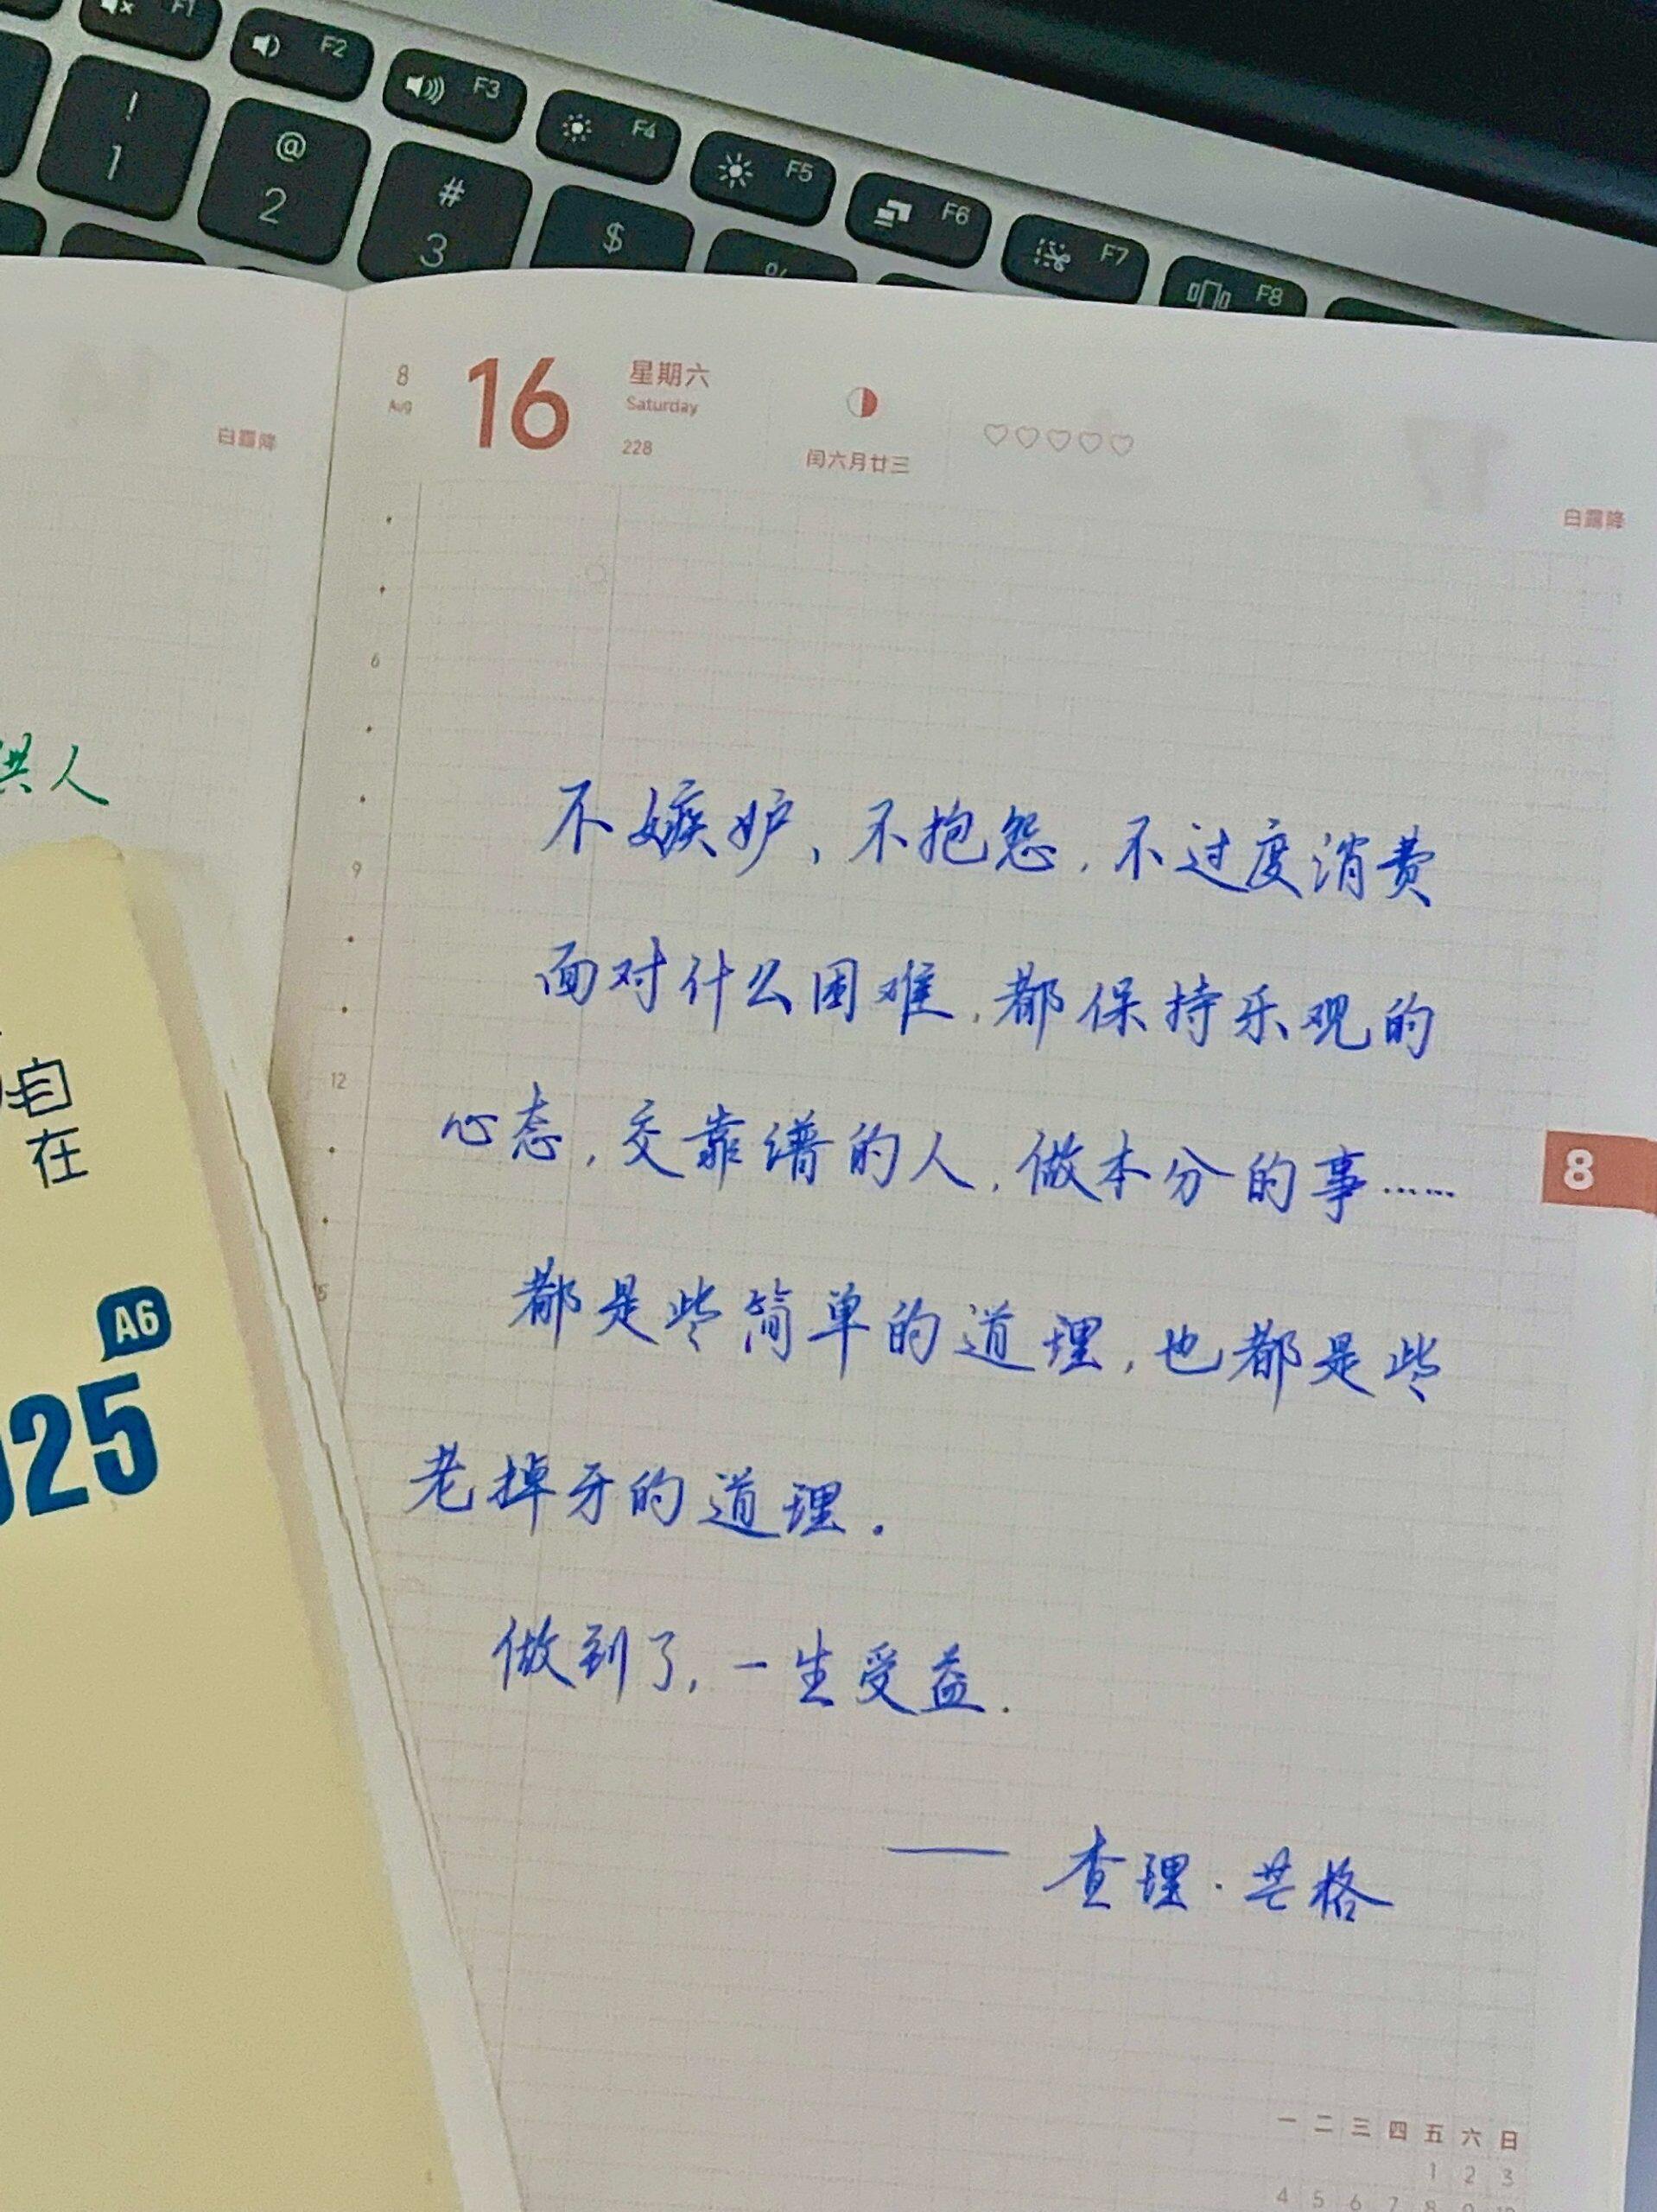 F1
F2
F3
F4
F5
F6
F7
F8
!
1
@
2
#
3
$
%
8
Aug
16
星期六
Saturday
228
闰六月廿三
♡♡♡♡♡
白露降
白露降
6
9
12
不嫉妒、不抱怨,不过度消费
面对什么困难,都保持乐观的
心态,交靠谱的人,做本分的事……
都是些简单的道理,也都是些
老掉牙的道理.
做到了,一生受益.
—— 查理·芒格
8
人
自
在
A6
025
一 二 三 四 五 六 日
1 2 3
4 5 6 7 8 9 10